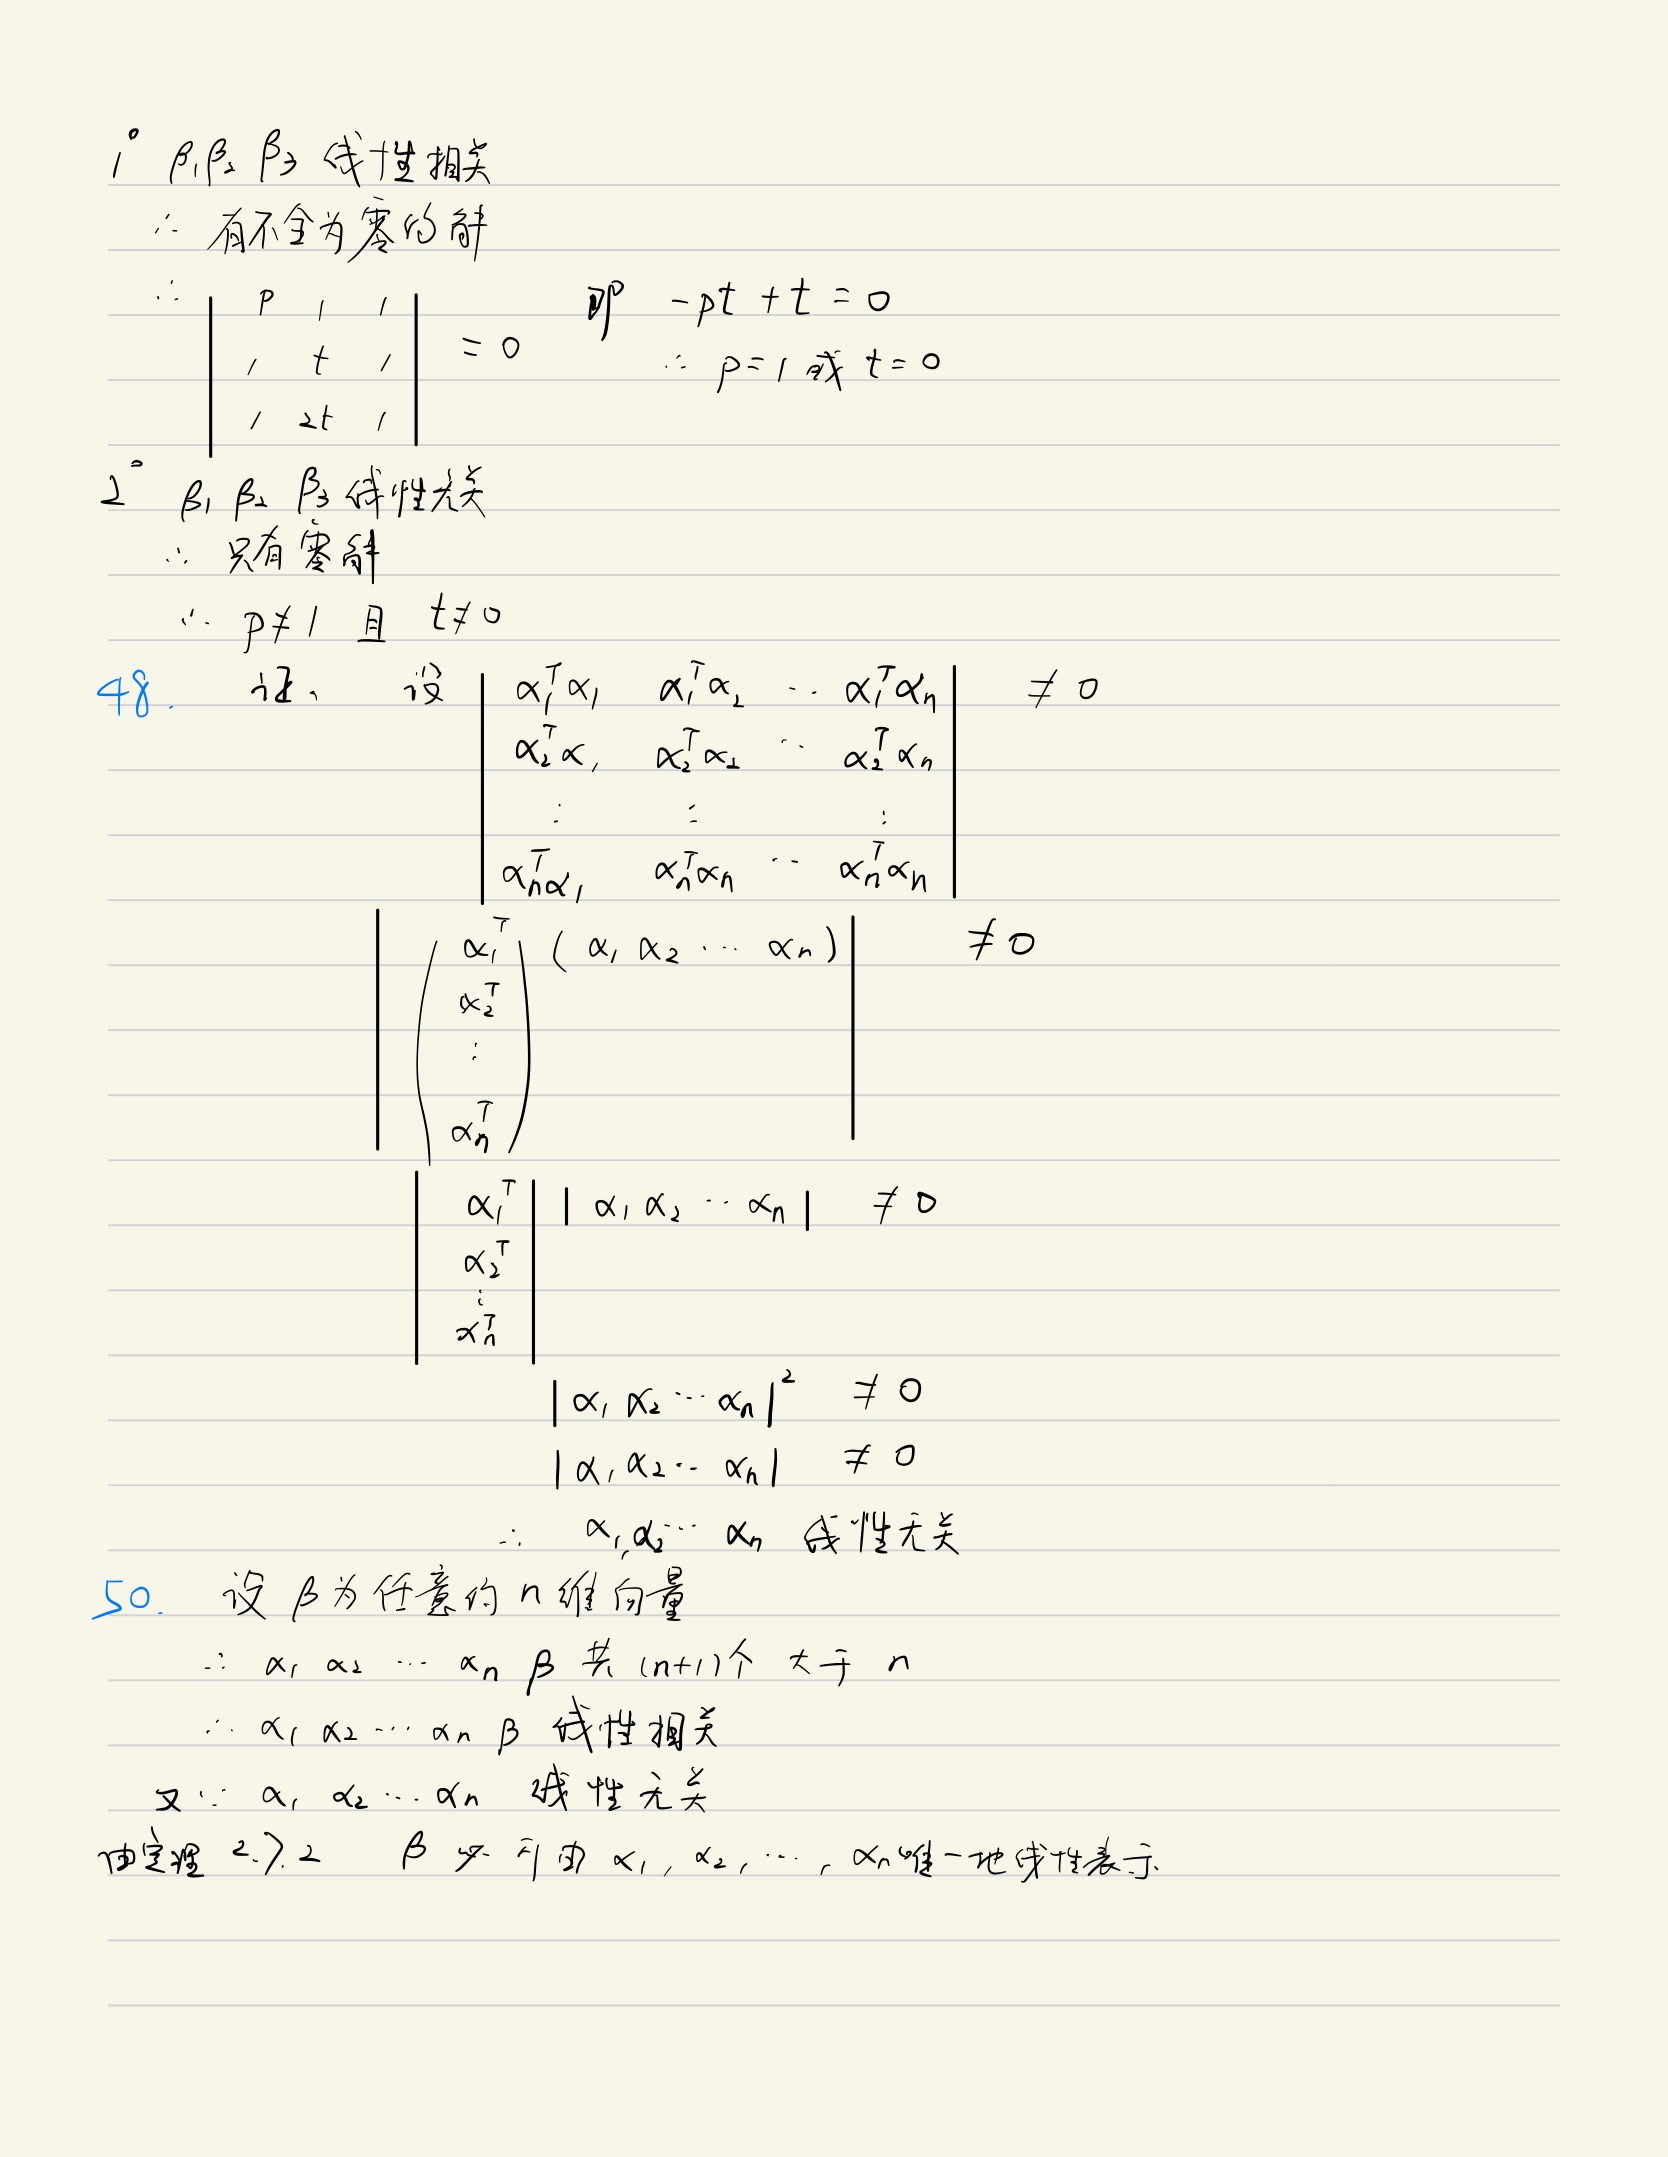 1° β₁β₂ β₃ 线性相关
∴ 有不全为零的解
∴ | p 1 1 | = 0 即 -pt + t = 0
| 1 t 1 | ∴ p=1 或 t=0
| 1 2t 1 |
2° β₁ β₂ β₃ 线性无关
∴ 只有零解
∴ p≠1 且 t≠0
48. 证、 设 | α₁ᵀα₁ α₁ᵀα₂ … α₁ᵀαₙ | ≠ 0
| α₂ᵀα₁ α₂ᵀα₂ … α₂ᵀαₙ |
| ⋮ ⋮ ⋮ |
| αₙᵀα₁ αₙᵀαₙ … αₙᵀαₙ |
| ( α₁ᵀ ) ( α₁ α₂ … αₙ ) | ≠ 0
α₂ᵀ
⋮
αₙᵀ
| α₁ᵀ | | α₁ α₂ … αₙ | ≠ 0
α₂ᵀ
⋮
αₙᵀ
| α₁ α₂ … αₙ |² ≠ 0
| α₁ α₂ … αₙ | ≠ 0
∴ α₁,α₂ … αₙ 线性无关
50. 设 β 为任意的 n 维向量
∴ α₁ α₂ … αₙ β 共 (n+1)个 大于 n
∴ α₁ α₂ … αₙ β 线性相关
又∵ α₁ α₂ … αₙ 线性无关
由定理 2.7.2 β 必可由 α₁, α₂, …, αₙ 唯一地线性表示